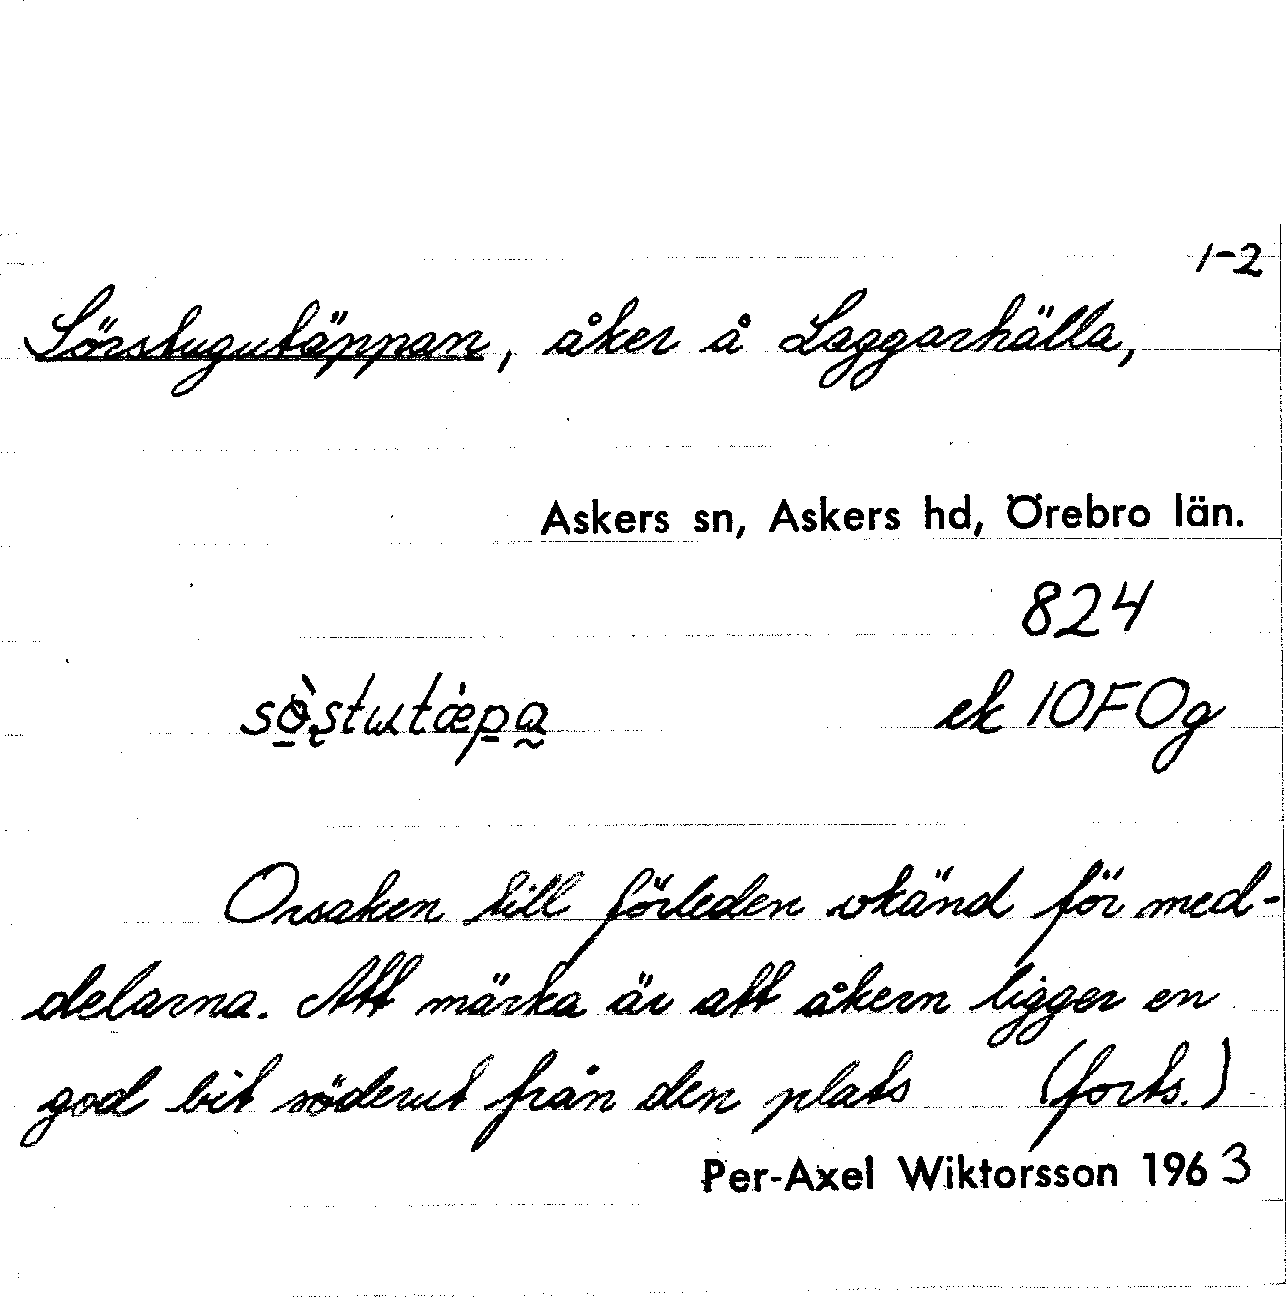 1-2
Sörstugutäppan, åker å Laggarhälla,
Askers sn, Askers hd, Örebro län.
824
ek 10F0g
Orsaken till förleden okänd för med-
delarna. Att märka är att åkern ligger en
god bit söderut från den plats (forts.)
Per-Axel Wiktorsson 1963